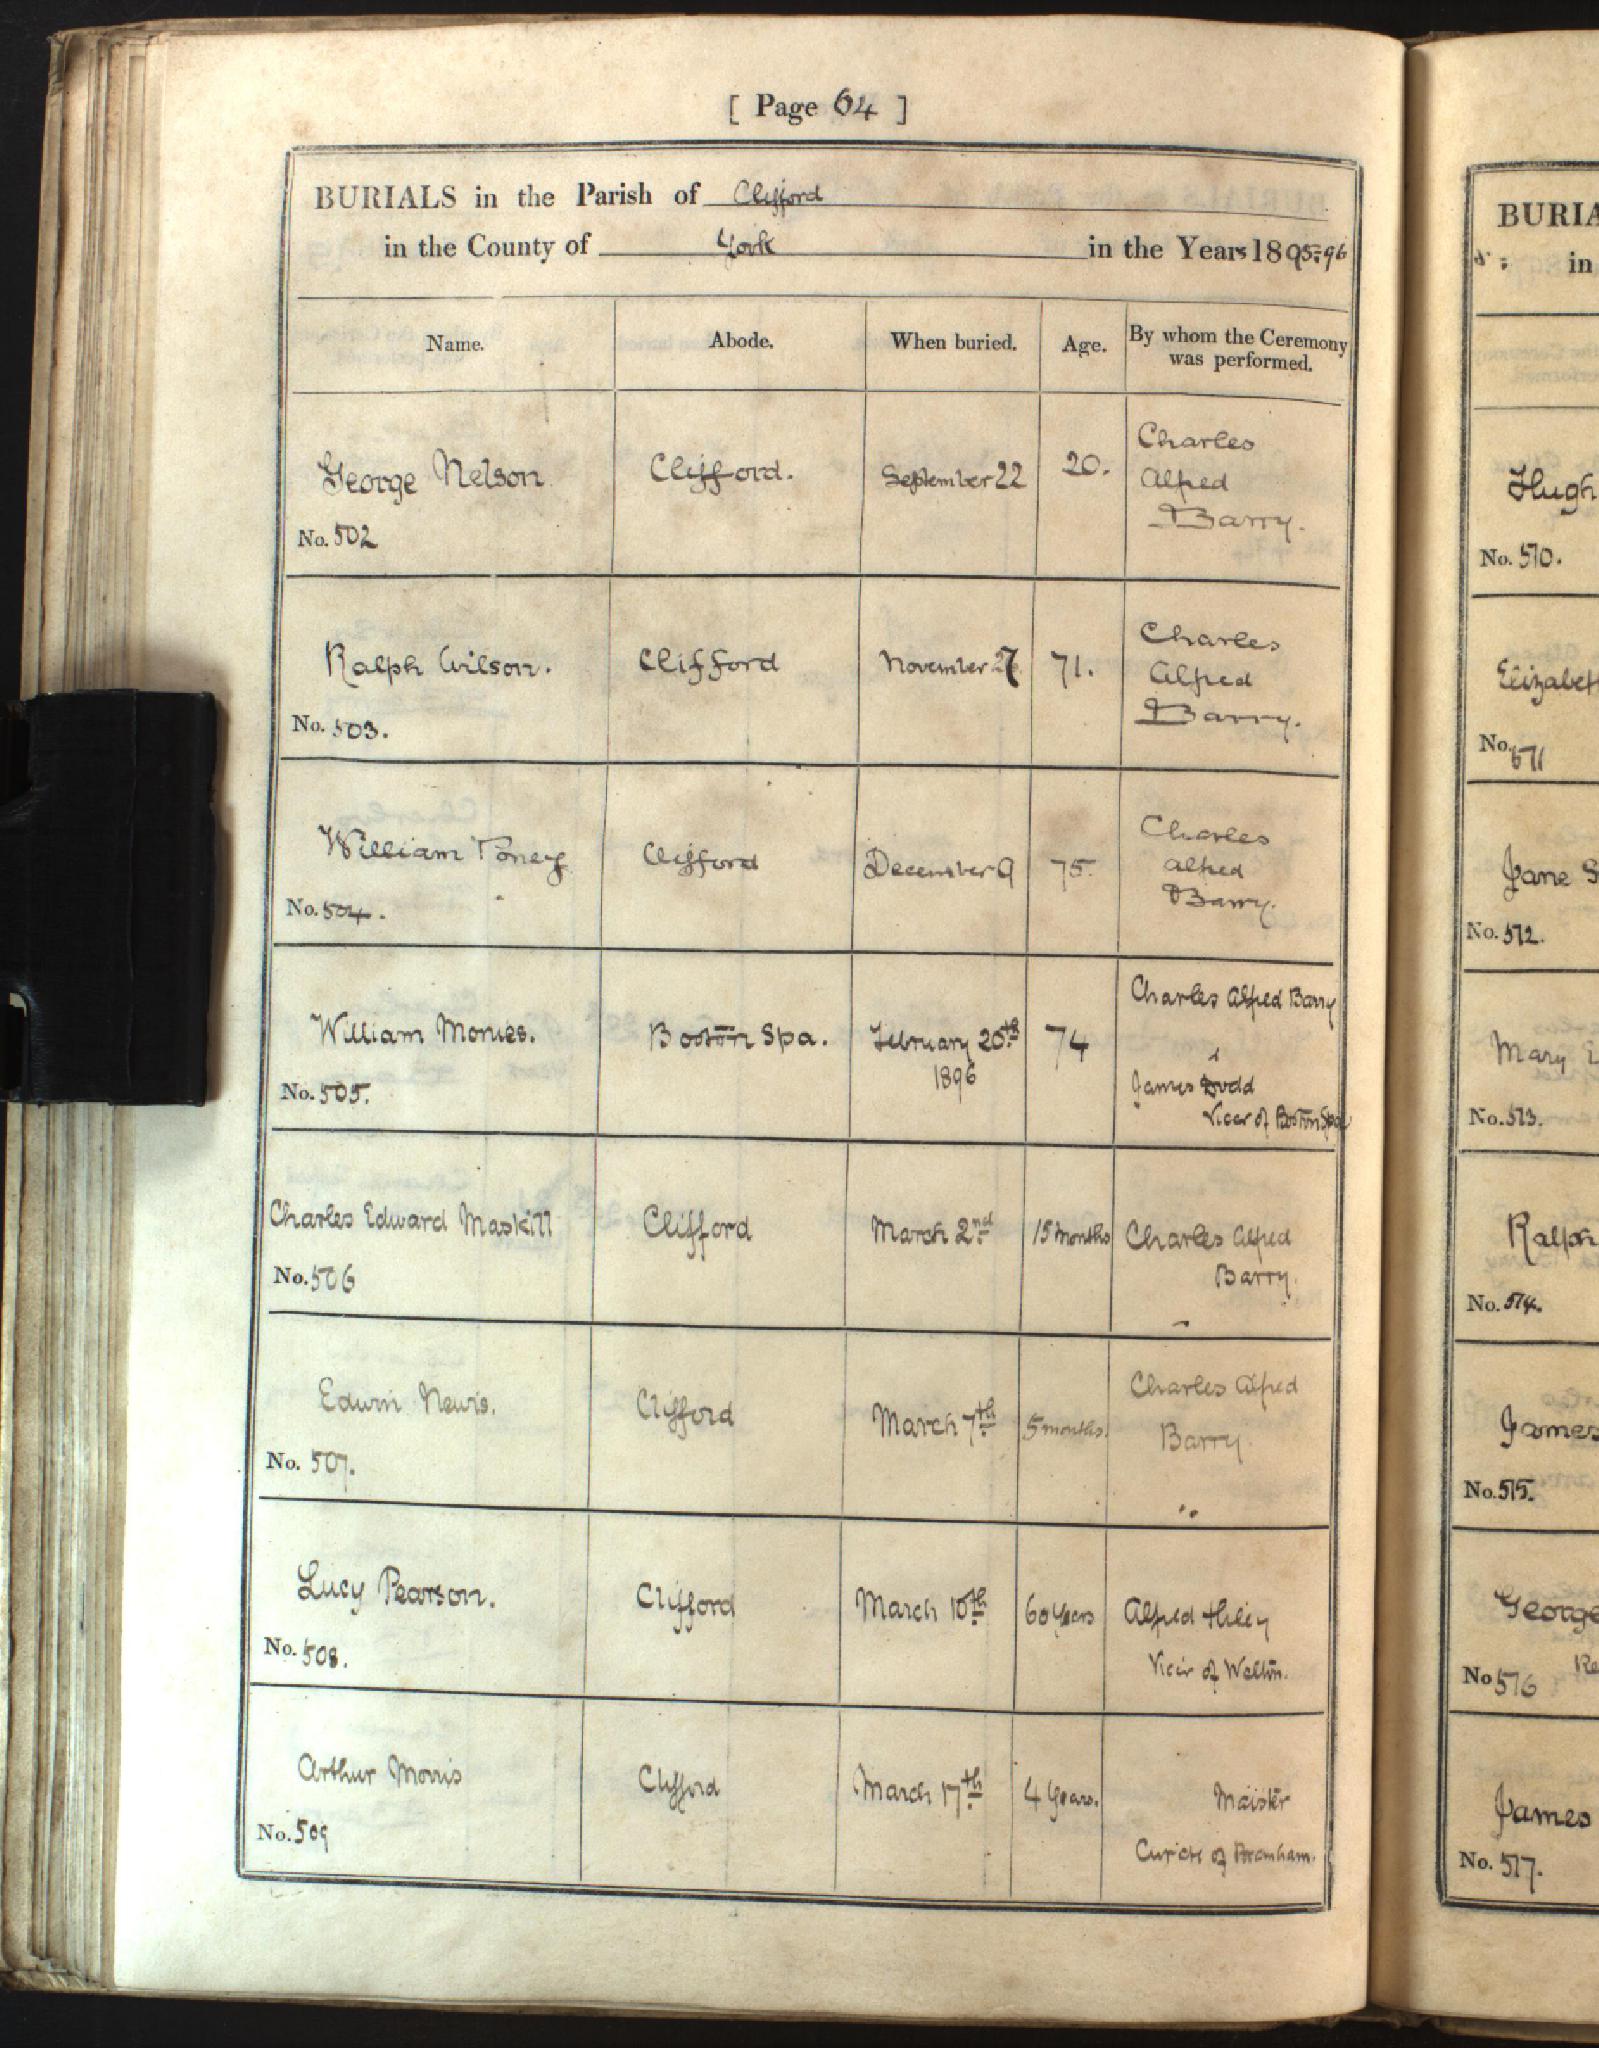 [ Page 64 ]
BURIALS in the Parish of Clifford
in the County of York in the Years 1895-96
Name. Abode. When buried. Age. By whom the Ceremony was performed.
George Nelson Clifford. September 22 20. Charles
Alfred
Barry.
No. 502
Ralph Wilson. Clifford November 27 71. Charles
Alfred
Barry.
No. 503.
William Toney Clifford December 9 75. Charles
Alfred
Barry.
No. 504.
William Monies. Boston Spa. February 20th 74 Charles Alfred Barry
1896
&
James Dodd
Vicar of Boston Spa
No. 505.
Charles Edward Maskill Clifford March 2nd 15 months Charles Alfred
Barry.
No. 506
Edwin Newis. Clifford March 7th 5 months. Charles Alfred
Barry.
No. 507.
Lucy Pearson. Clifford March 10th 60 years Alfred
Vicar of Welton.
No. 508.
Arthur Morris Clifford March 17th 4 Years. Maister
Curate of Bramham.
No. 509
BURIA
in
Hugh
No. 510.
Elizabeth
No. 511
Jane S
No. 512.
Mary E
No. 513.
Ralph
No. 514.
James
No. 515.
George
Re
No 516
James
No. 517.